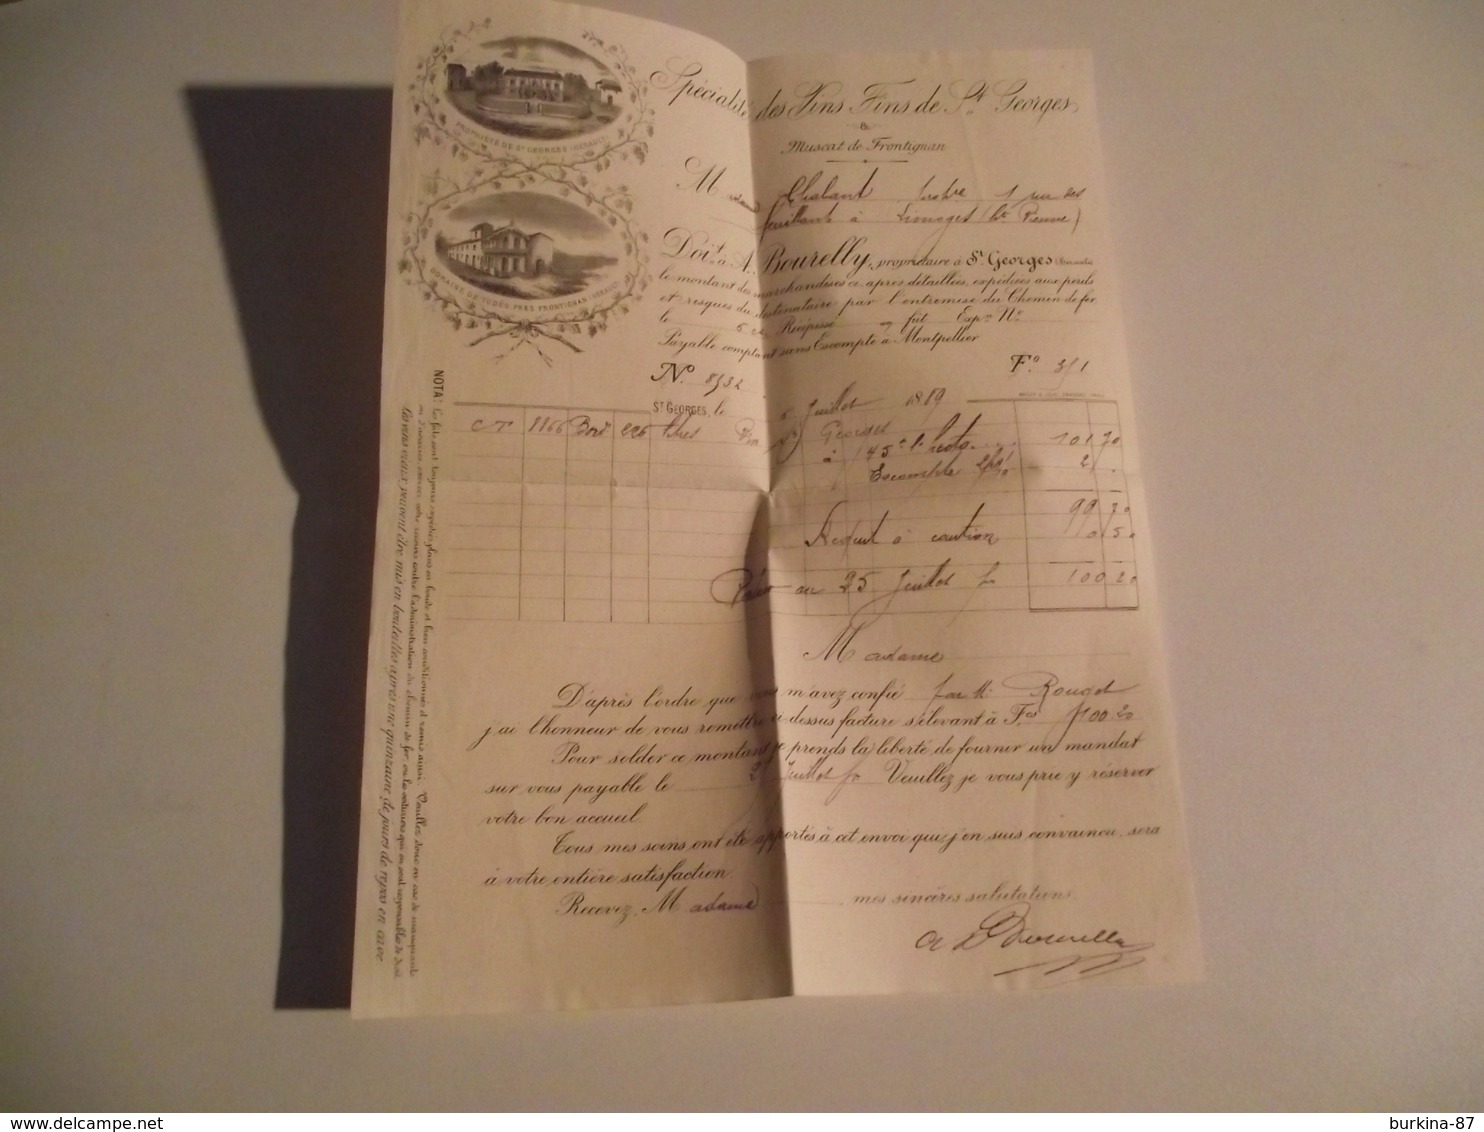 PROPRIÉTÉ DE ST GEORGES (HÉRAULT)
DOMAINE DE TUDES, PRÈS FRONTIGNAN (HÉRAULT)
Spécialité des Vins Fins de St Georges
&
Muscat de Frontignan
Madame Chabant 1 rue des
feuillants à Limoges (Hte Vienne)
Doit à A. Bourelly, propriétaire à St Georges (Hérault)
le montant des marchandises ci-après détaillées, expédiées aux périls
et risques du destinataire par l'entremise du Chemin de fer
le 6 Récépissé fût Expon No
Payable comptant sans Escompte à Montpellier
No 8532 Fo 351
ST GEORGES, le 6 Juillet 1889
CT 1166 Bord 226 litres Vin St Georges
à 145 f l'hecto 101 70
Escompte 2 p% 2 .
99 70
Acquit à caution 0 50
au 25 Juillet f 100 20
Madame
D'après l'ordre que vous m'avez confié par M. Rouget
j'ai l'honneur de vous remettre ci-dessus facture s'élevant à Fcs f 100.20
Pour solder ce montant je prends la liberté de fournir un mandat
sur vous payable le 25 Juillet fx Veuillez je vous prie y réserver
votre bon accueil
Tous mes soins ont été apportés à cet envoi qui, j'en suis convaincu, sera
à votre entière satisfaction.
Recevez, Madame mes sincères salutations.
A Bourelly
NOTA: Les fûts sont toujours expédiés pleins en bonde et bien conditionnés et remis ainsi. Veuillez donc en cas de manquants
ou d'avaries, exercer votre recours contre l'administration du chemin de fer, ou les voituriers qui en sont responsables de droit
Les vins vieux peuvent être mis en bouteilles après une quinzaine de jours de repos en cave
burkina-87